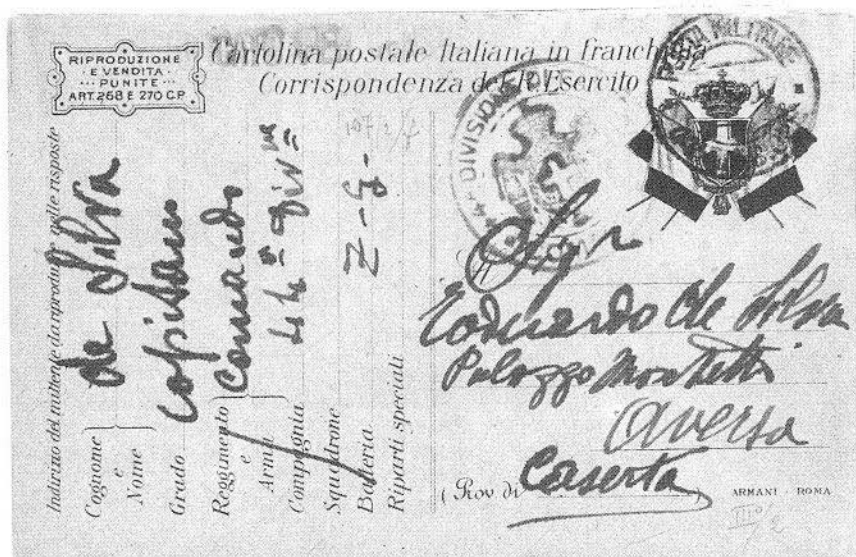 RIPRODUZIONE
E VENDITA
PUNITE
ART. 268 E 270 C.P.
Cartolina postale Italiana in franchigia
Corrispondenza del R. Esercito
POSTA MILITARE
DIVISIONE
Indirizzo del mittente da riprodursi nelle risposte
Cognome e Nome de Silva
Grado Capitano
Reggimento e Arma Comando
Compagnia 44ª Divne
Squadrone
Batteria Z-G-
Riparti speciali
Sigr
Edduardo de Silva
Palazzo
Aversa
(Prov di Caserta)
ARMANI - ROMA